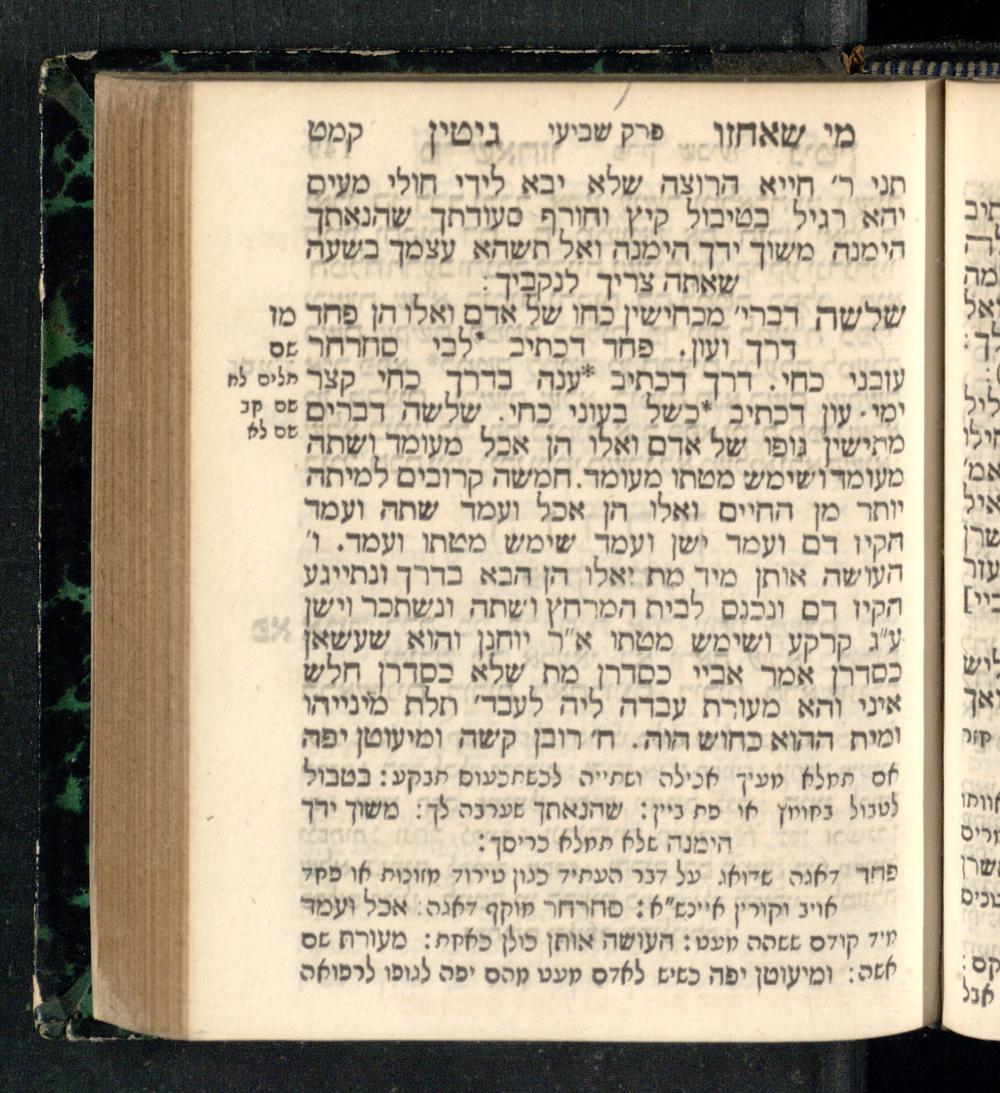 מי שאחזו פרק שביעי גיטין קמט
תני ר׳ חייא הרוצה שלא יבא לידי חולי מעים
יהא רגיל בטיבול קיץ וחורף סעודתך שהנאתך
הימנה משוך ידך הימנה ואל תשהא עצמך בשעה
שאתה צריך לנקביך :
שלשה דברי׳ מכחישין כחו של אדם ואלו הן פחד מז
דרך ועון. פחד דכתיב *לבי סחרחר שם
עזבני כחי. דרך דכתיב *ענה בדרך כחי קצר תלים לח
ימי. עון דכתיב *כשל בעוני כחי. שלשה דברים שם קב
מתישין גופו של אדם ואלו הן אכל מעומד ושתה שם לא
מעומד ושימש מטתו מעומד. חמשה קרובים למיתה
יותר מן החיים ואלו הן אכל ועמד שתה ועמד
הקיז דם ועמד ישן ועמד שימש מטתו ועמד. ו׳
העושה אותן מיד מת ואלו הן הבא בדרך ונתייגע
הקיז דם ונכנס לבית המרחץ ושתה ונשתכר וישן
ע״ג קרקע ושימש מטתו א״ר יוחנן והוא שעשאן
כסדרן אמר אביי כסדרן מת שלא כסדרן חלש
איני והא מעורת עבדה ליה לעבד׳ תלת מינייהו
ומית ההוא כחוש הוה. ח׳ רובן קשה ומיעוטן יפה
אם תמלא מעיך אכילה ושתייה לכשתכעוס תבקע : בטבול
לטבול בחומץ או פת ביין : שהנאתך שערבה לך : משוך ידך
הימנה שלא תמלא כריסך :
פחד דאגה שדואג על דבר העתיד כגון טירוד מזונות או פחד
אויב וקורין אייגש״א : סחרחר מוקף דאגה : אכל ועמד
מיד קודם ששהה מעט : העושה אותן כולן כאחת : מעורת שם
אשה : ומיעוטן יפה כשיש לאדם מעט מהם יפה לגופו לרפואה